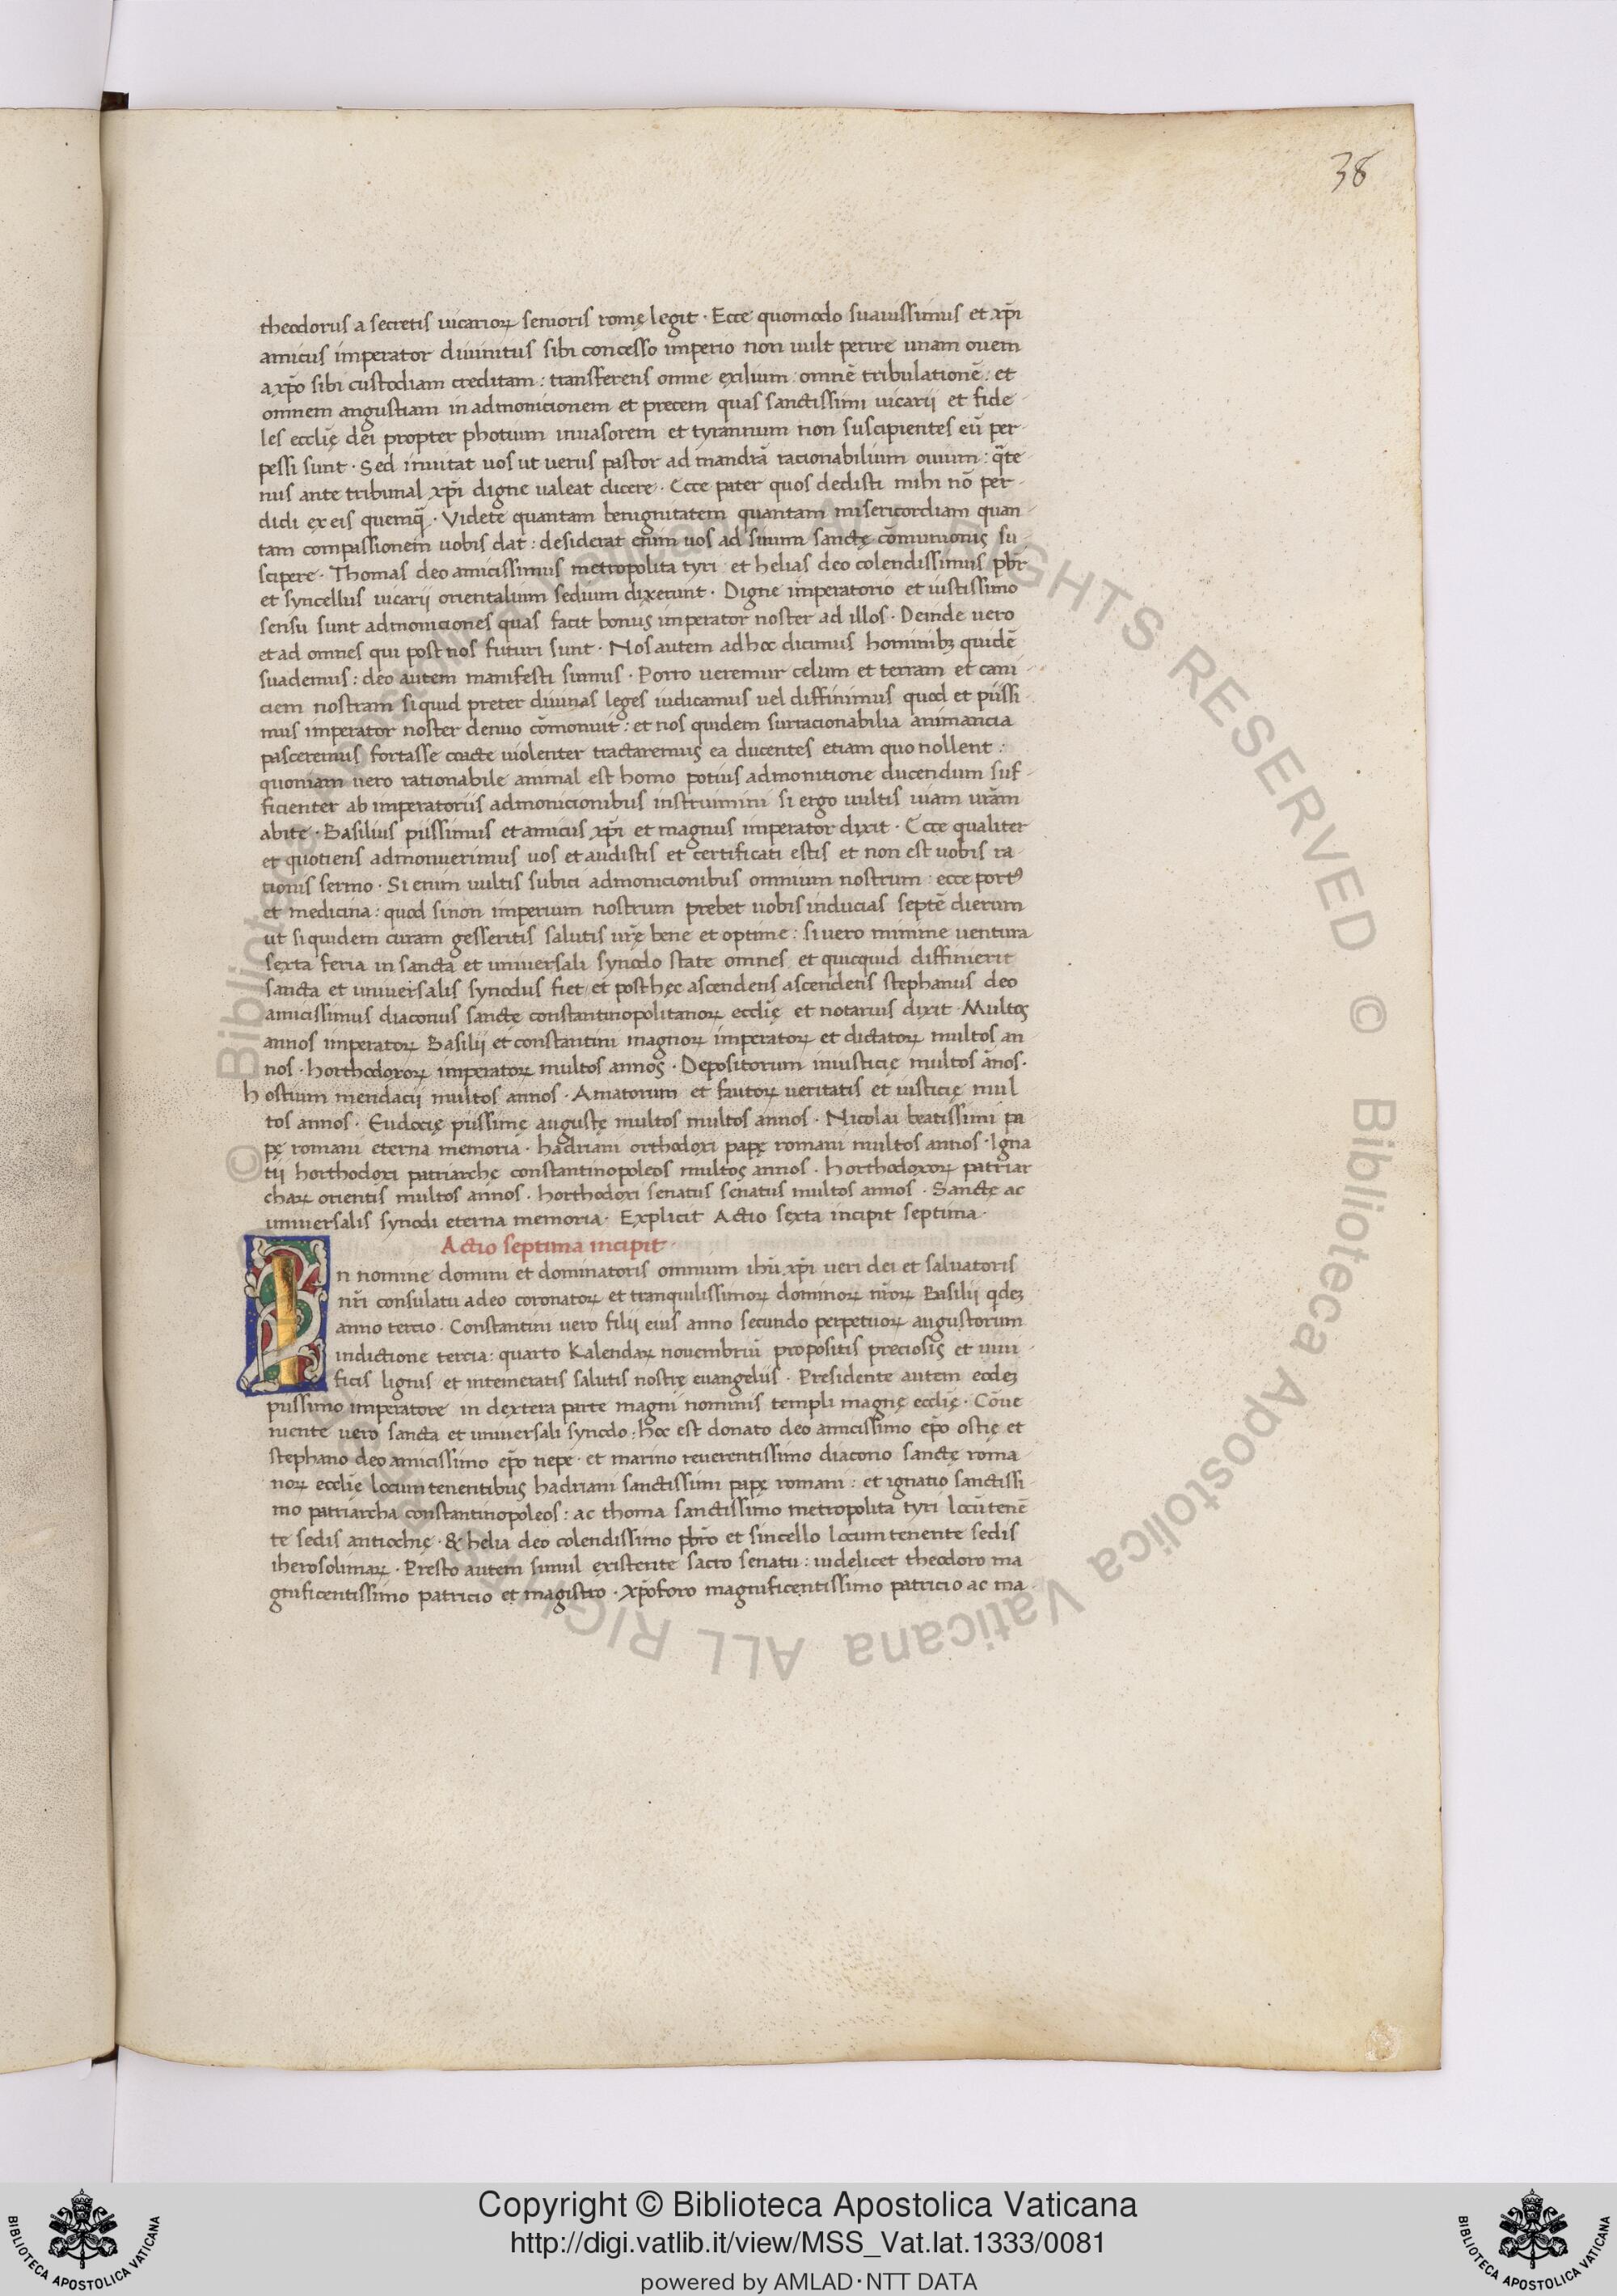 38
theodorus a secretis uicarioꝝ senioris romę legit · Ecce quomodo suauissimus et xp̄i
amicus imperator diuinitus sibi concesso imperio non uult perire unam ouem
a xp̄o sibi custodiam creditam : transferens omne exilium : omnē tribulationē : et
omnem angustiam in admonicionem et precem quas sanctissimi uicarii et fide
les eccl̄ię dei propter photium inuasorem et tyrannum non suscipientes eū per
pessi sunt · Sed inuitat uos ut uerus pastor ad mandrā racionabilium ouium : q̄te
nus ante tribunal xp̄i digne ualeat dicere · Ecce pater quos dedisti mihi nō per
didi ex eis quemq̄ · Videte quantam benignitatem quantam misericordiam quan
tam compassionem uobis dat : desiderat enim uos ad sinum sanctę cōmunionis su
scipere · Thomas deo amicissimus metropolita tyri : et helias deo colendissimus pb̄r
et syncellus uicarii orientalium sedium dixerunt · Digne imperatorio et iustissimo
sensu sunt admoniciones quas facit bonus imperator noster ad illos · Deinde uero
et ad omnes qui post nos futuri sunt · Nos autem ad hoc dicimus hominibꝫ quidē
suademus : deo autem manifesti sumus · Porro ueremur celum et terram et cani
ciem nostram si quid preter diuinas leges iudicamus uel diffinimus quod et piissi
mus imperator noster denuo cōmonuit : et nos quidem si irracionabilia animancia
pasceremus fortasse coacte uiolenter tractaremus ea ducentes etiam quo nollent :
quoniam uero rationabile animal est homo potius admonitione ducendum suf
ficienter ab imperatoriis admonicionibus instruimini si ergo uultis uiam urām
abite · Basilius piissimus et amicus xp̄i et magnus imperator dixit · Ecce qualiter
et quotiens admonuerimus uos et audistis et certificati estis et non est uobis ra
tionis sermo · Si enim uultis subici admonicionibus omnium nostrum : ecce portꝰ
et medicina : quod si non imperium nostrum prebet uobis inducias septē dierum
ut si quidem curam gesseritis salutis ur̄ę bene et optime : si uero minime uentura
sexta feria in sancta et uniuersali synodo state omnes et quicquid diffinierit
sancta et uniuersalis synodus fiet et post hęc ascendens ascendens stephanus deo
amicissimus diaconus sanctę constantinopolitanoꝝ eccl̄ię et notarius dixit · Multos
annos imperatoꝝ Basilii et constantini magnoꝝ imperatoꝝ et dictatoꝝ multos an
nos · horthodoxoꝝ imperatoꝝ multos annos · Depositorum iniusticię multos ānos ·
hostium mendacii multos annos · Amatorum et fautoꝝ ueritatis et iusticię mul
tos annos · Eudocię piissimę augustę multos multos annos · Nicolai beatissimi pa
pę romani eterna memoria · hadriani orthodoxi papę romani multos annos · Igna
tii horthodoxi patriarchę constantinopoleos multos annos · horthodoxoꝝ patriar
chaꝝ orientis multos annos · horthodoxi senatus senatus multos annos · Sanctę ac
uniuersalis synodi eterna memoria · Explicit Actio sexta incipit septima ·
Actio septima incipit ·
In nomine domini et dominatoris omnium ihū xp̄i ueri dei et saluatoris
nr̄i consulatu a deo coronatoꝝ et tranquilissimoꝝ dominoꝝ nr̄oꝝ Basilii qdeꝫ
anno tercio · Constantini uero filii eius anno secundo perpetuoꝝ augustorum
indictione tercia : quarto Kalendaꝝ nouembriū propositis preciosis et uiui
ficis lignis et intemeratis salutis nostrę euangeliis · Presidente autem eodeꝫ
piissimo imperatore in dextera parte magni nominis templi magnę eccl̄ię · Cōue
niente uero sancta et uniuersali synodo : hoc est donato deo amicissimo ep̄o ostię et
stephano deo amicissimo ep̄o nepe · et marino reuerentissimo diacono sanctę roma
noꝝ eccl̄ię locum tenentibus hadriani sanctissimi papę romani : et ignatio sanctissi
mo patriarcha constantinopoleos : ac thoma sanctissimo metropolita tyri locū tenē
te sedis antiochię · & helia deo colendissimo pb̄ro et sincello locum tenente sedis
iherosolimaꝝ · Presto autem simul existente sacro senatu : uidelicet theodoro ma
gnificentissimo patricio et magistro · xp̄oforo magnificentissimo patricio ac ma
© Biblioteca Apostolica Vaticana ALL RIGHTS RESERVED © Biblioteca Apostolica Vaticana ALL RIGHTS RESERVED
Copyright © Biblioteca Apostolica Vaticana
http://digi.vatlib.it/view/MSS_Vat.lat.1333/0081
powered by AMLAD·NTT DATA
BIBLIOTECA APOSTOLICA VATICANA
BIBLIOTECA APOSTOLICA VATICANA